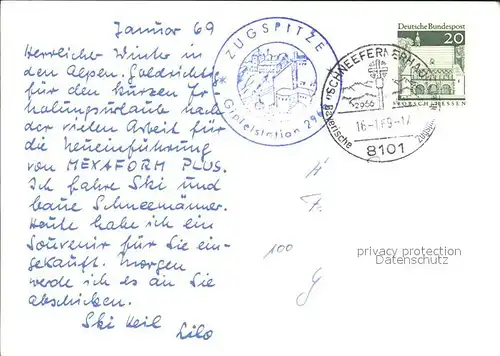 Januar 69
Herrlicher Winter in
den Alpen. Goldrichtig
für den kurzen Er-
holungsurlaub nach
der vielen Arbeit für
die Neueinführung
von MEXAFORM PLUS.
Ich fahre Ski und
baue Schneemänner.
Heute habe ich ein
Souvenir für Sie ein-
gekauft. Morgen
werde ich es an Sie
abschicken.
Ski Heil
Lilo
ZUGSPITZE
Gipfelstation
SCHNEEFERNERHAUS
2966
16-1 69-17
8101
Deutsche Bundespost
20
LORSCH/HESSEN
100
privacy protection
Datenschutz